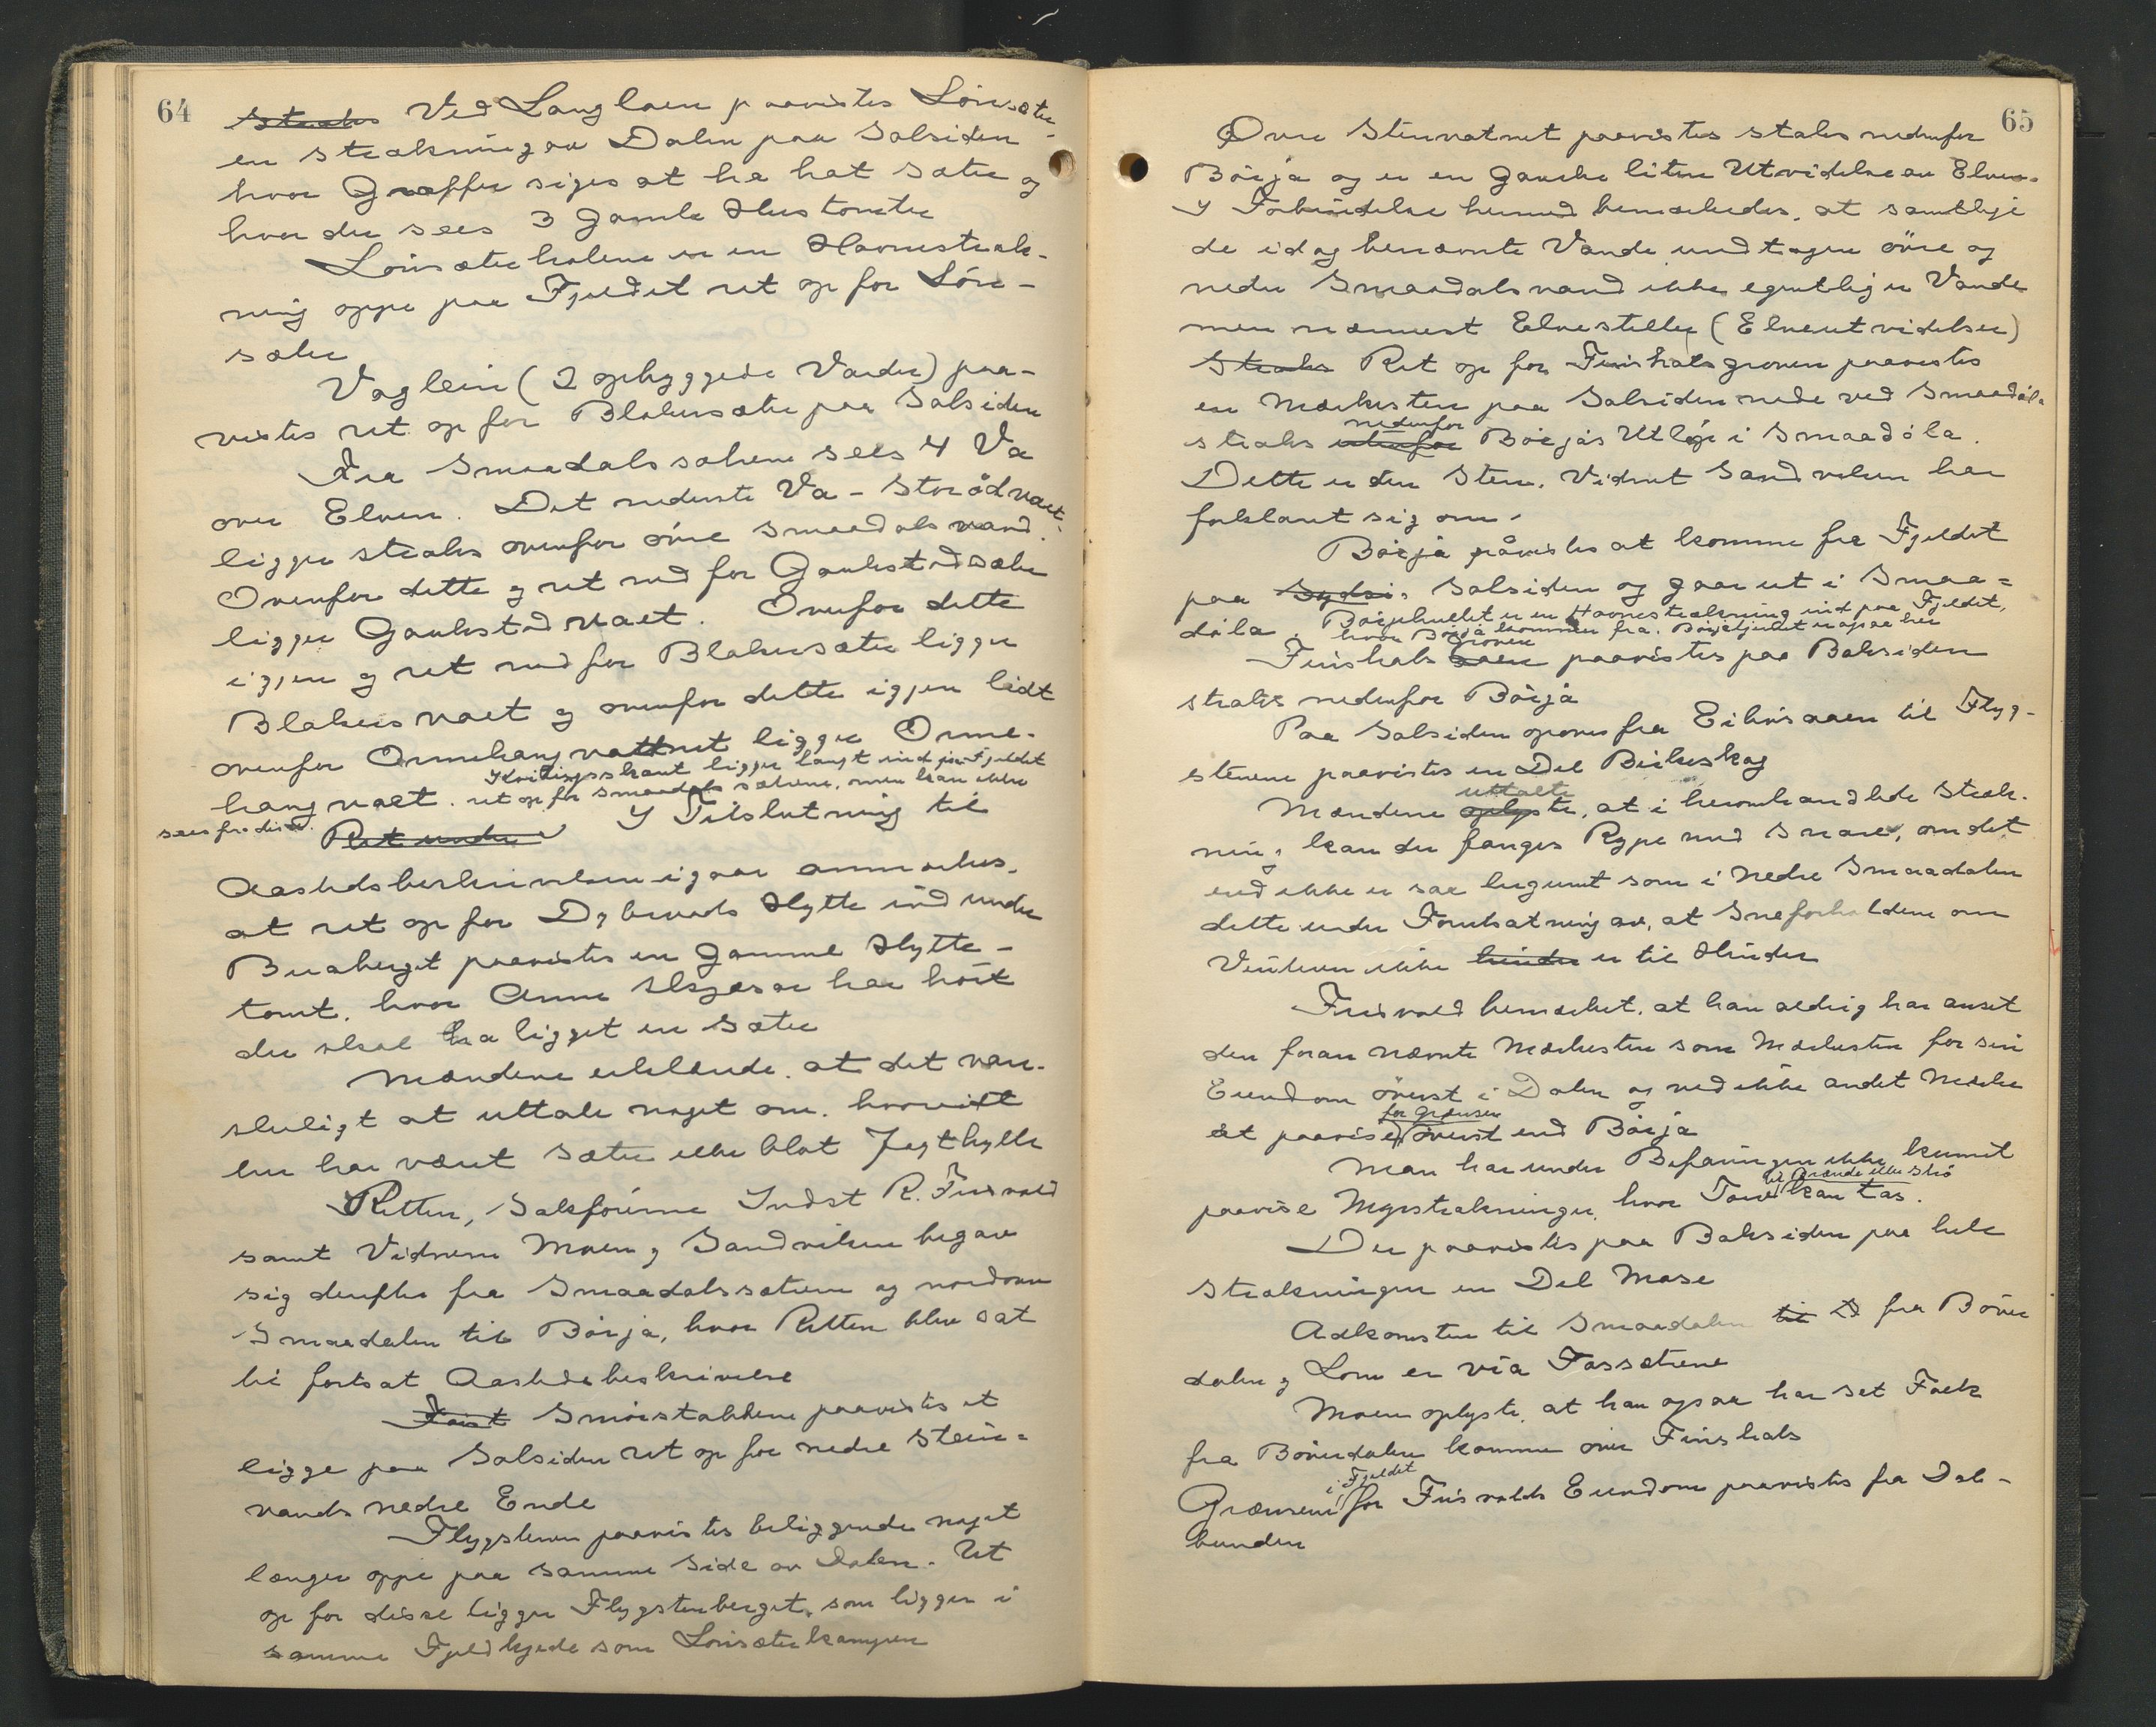 64
Straks Ved Langlaen paavistes Lönsæter-
en strækning av Dalen paa Solsiden
hvor Græffer siges at ha hat Sæter og
hvor der sees 3 gamle Hustomter
Lönsæterholene er en Havnestræk-
ning oppe paa Fjeldet ret op for Lön-
sæter
Vaglein (2 opbyggede Varder) paa-
vistes ret op for Blakersæter paa Solsiden
Fra Smaadalssætrene sees 4 Va
over Elven. Det nederste Va - Storödvaet
ligger straks ovenfor övre Smaadalsvand.
Ovenfor dette og ret ned for Gaukstadsæter
ligger Gaukstadvaet. Ovenfor dette
igjen og ret ned for Blakersæter ligger
Blakersvaet og ovenfor dette igjen lidt
ovenfor Ormehangvattnet ligger Orme-
Kvitingsskaut ligger langt ind paa Fjeldet
hangvaet. ret op for Smaadalssætrene, men kan ikke
sees fra disse.
Ret under I Tilslutning til
Aastedsbeskrivelsen igaar anmerkes,
at ret op for Dybvads Hytte ind under
Buaberget paavistes en gammel Hytte-
tomt, hvor Anne Skjesar har hört
der skal ha ligget en Sæter
Mændene erklærede, at det van-
skeligt at uttale noget om, hvorvidt
her har været Sæter eller blot Jagthytte
Retten, Sakförerne Indst R. Frisvold
samt Vidnerne Moen og Sandviken begav
sig derefter fra Smaadalssætrene og nordover
Smaadalen til Börja, hvor Retten blev sat
til fortsat Aastedsbeskrivelse
Först Smörstabbene paavistes at
ligge paa Solsiden ret op for nedre Stein-
vands nedre Ende
Flygstenen paavistes beliggende noget
længer oppe paa samme Side av Dalen. Ret
op for disse ligger Flygstenberget, som ligger i
samme Fjeldkjede som Lönsæterkampen
65
Övre Stenvatnet paavistes straks nedenfor
Börja og er en ganske liten Utvidelse av Elven.
I Forbindelse hermed bemerkedes, at samtlige
de idag benævnte Vande undtagen övre og
nedre Smaadalsvand ikke egentlig er Vande
men nærmest Elvestiller (Elveutvidelser)
Straks Ret op for Finshalsgroven paavistes
en Merkesten paa Solsiden nede ved Smaadöla
nedenfor
straks utenfor Börjas Utlöp i Smaadöla.
Dette er den Sten, Vidnet Sandviken har
forklaret sig om.
Börja påvistes at komme fra Fjeldet
paa Sydsi. Solsiden og gaar ut i Smaa-
döla. Börjehullet er en Havnestrækning ind paa Fjeldet,
hvor Börja kommer fra. Börjetjernet er ogsaa her
groven
Finshals paavistes paa Baksiden
straks nedenfor Börja
Paa Solsiden opover fra til Flyg-
stenene paavistes en Del Birkeskog
uttalte
Mændene oplyste, at i heromhandlede Stræk-
ning kan der fanges Rype med Snare, om det
end ikke er saa lugumt som i Nedre Smaadalen
dette under Forutsætning av, at Sneforholdene om
Vinteren ikke hinder er til Hinder
Frisvold bemerket, at han aldrig har anset
den foran nævnte Merkesten som Merkesten for sin
Eiendom överst i Dalen og ved ikke andet Merke
for Grænsen
at paavise överst end Börja
Man har under Befaringen ikke kunnet
til Brænde eller Strö
paavise Myrstrækninger, hvor Torv kan tas.
Der paavistes paa Baksiden paa hele
Strækningen en Del Mose
Adkomsten til Smaadalen til fra Böver
dalen og Lom er via Fossætrene
Moen oplyste, at han ogsaa har set Folk
fra Böverdalen komme over Finshals
i Fjeldet
Grænsen for Frisvolds Eiendom paavistes fra Dal-
bunden